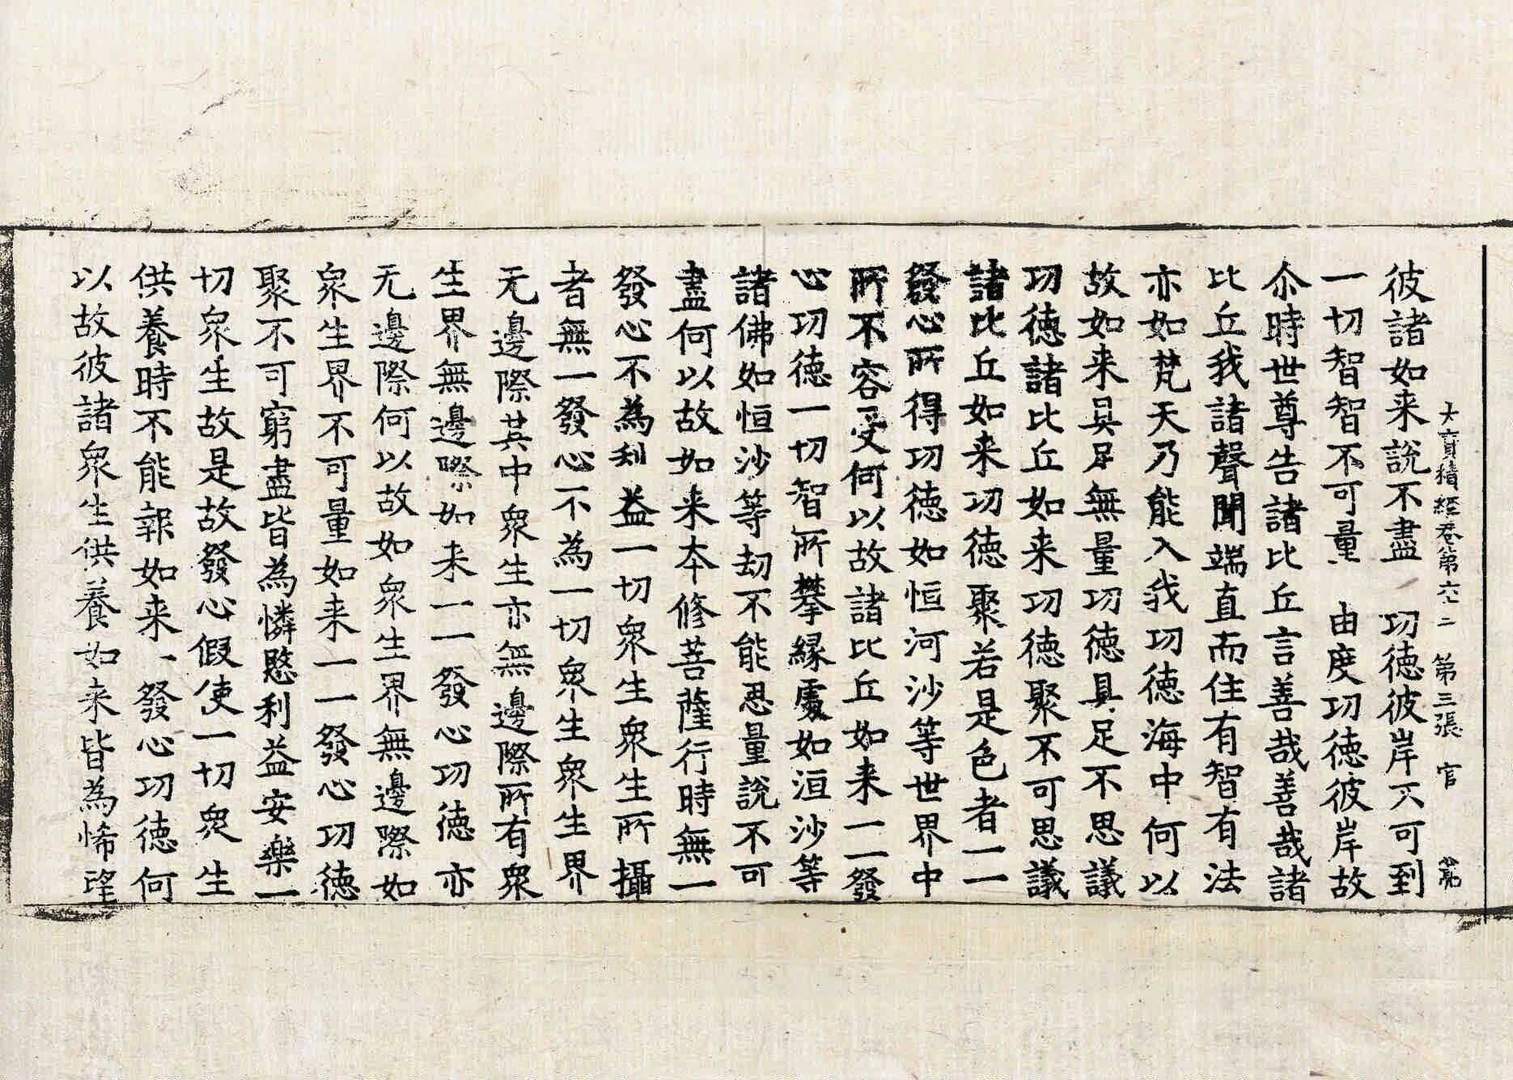 大寳積經卷第六二 第三張 官
彼諸如来說不盡 功德彼岸不可到
一切智智不可量 由度功德彼岸故
尒時世尊告諸比丘言善哉善哉諸
比丘我諸聲聞端直而住有智有法
亦如梵天乃能入我功德海中何以
故如来具足無量功德具足不思議
功德諸比丘如来功德聚不可思議
諸比丘如来功德聚若是色者一一
發心所得功德如恒河沙等世界中
所不容受何以故諸比丘如来一一發
心功德一切智所攀緣處如洹沙等
諸佛如恒沙等劫不能思量說不可
盡何以故如来本修菩薩行時無一
發心不為利益一切衆生衆生所攝
者無一發心不為一切衆生衆生界
无邊際其中衆生亦無邊際所有衆
生界無邊際如来一一發心功德亦
无邊際何以故如衆生界無邊際如
衆生界不可量如来一一發心功德
聚不可窮盡皆為憐愍利益安樂一
切衆生故是故發心假使一切衆生
供養時不能報如来一發心功德何
以故彼諸衆生供養如来皆為悕望